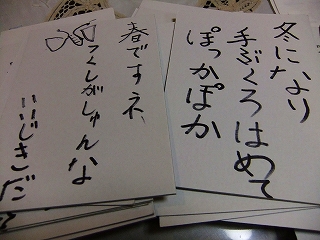 冬になり
手ぶくろはめて
ぽっかぽか
春ですネ
つくしがしゅんな
いいじきだ